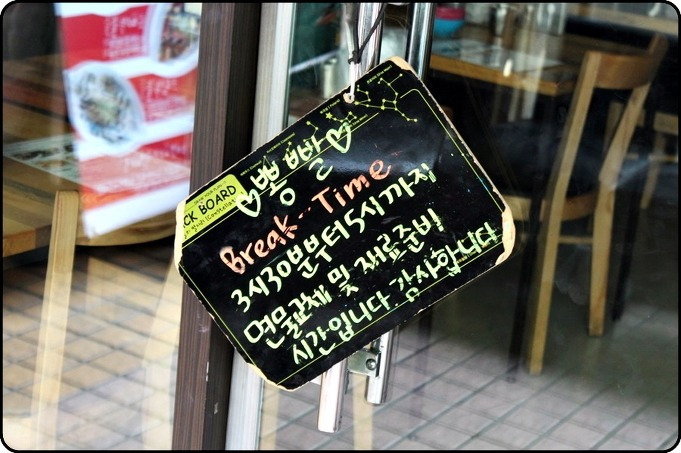 ♡뽕뽈♡
CK BOARD
Break-Time
3시30분부터 5시까지
면물교체 및 재료준비
시간입니다 감사합니다